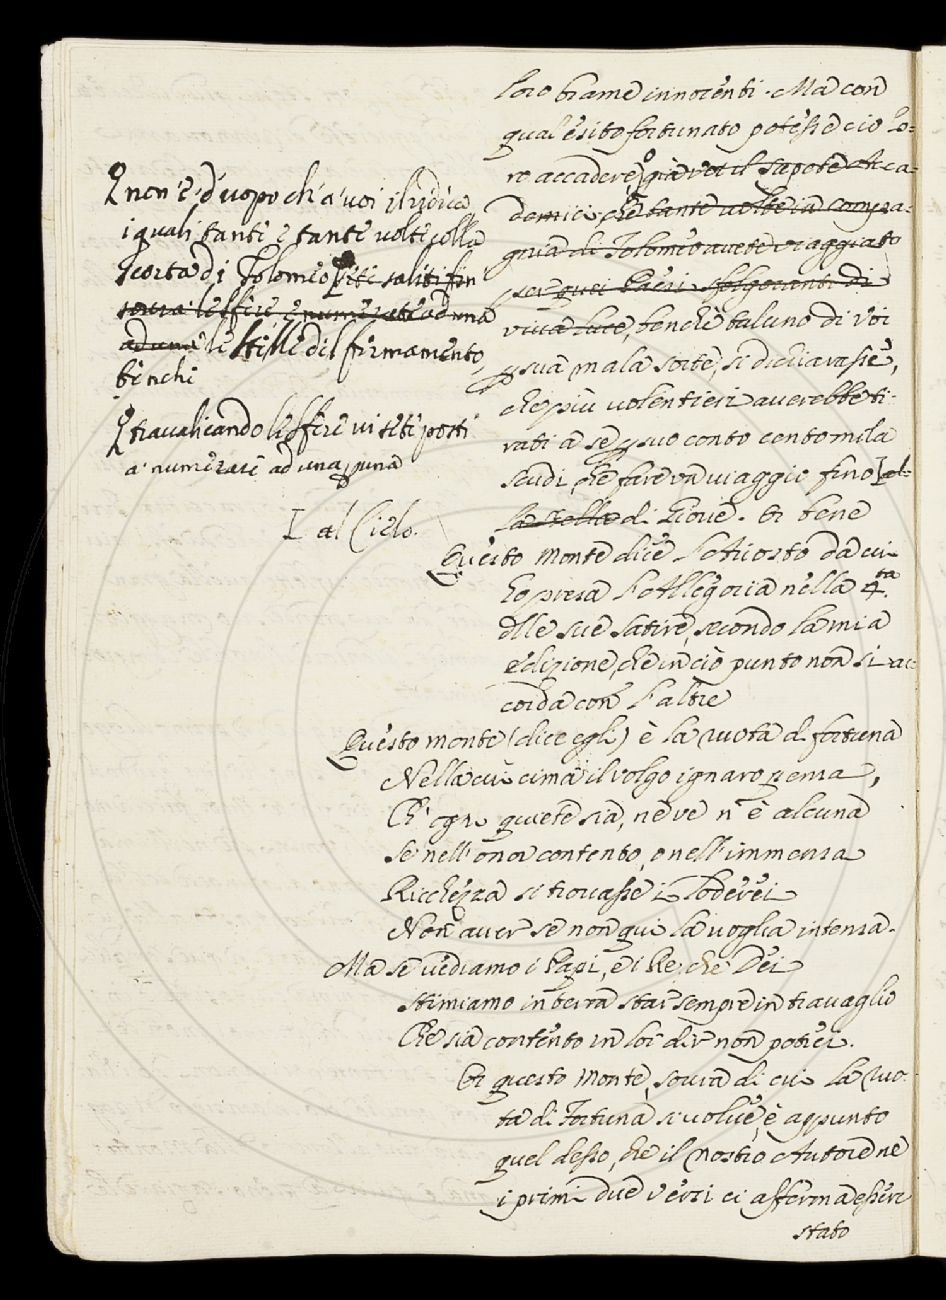 loro brame innocenti. Ma con
qual esito fortunato potesse ciò lo=
ro accadere, già voi il sapete Acca=
demici, che tante volte in compa=
gnia di Tolomeo avete viaggiato
per quei Paesi sfolgoranti di
viva luce, benchè taluno di voi
p sua mala sorte, si dichiarasse,
che più volentieri averebbe ti=
rati a se p suo conto centomila
scudi, che fare un viaggio fino al=
la stella di Giove. Or bene
Questo monte dice l'Ariosto da cui
ho presa l'Allegoria nella 4.ta
dlle sue satire, secondo la mia
edizione, che in ciò punto non si ac=
corda con l'altre
Questo monte (dice egli) è la ruota di fortuna
Nella cui cima il volgo ignaro pensa,
Ch' ogni quiete sia, nè ve n' è alcuna
Se nell' onor contento, o nell' immensa
Ricchezza si trovasse i loderei
Non aver se non qui la voglia intensa.
Ma se vediamo i Papi, e i Re, che Dei
stimiamo in terra star sempre in travaglio
Che sia contento in lor dir non potrei.
Or questo monte, sovra di cui la ruo=
ta di Fortuna si volve, è appunto
quel desso, che il nostro Autore ne
i primi due versi ci afferma essere
stato
non è d'uopo ch' a' voi il ridica
i quali tanti e tante volte colla
scorta di Tolomeo siete saliti fin
sovra le sfere e numerate ad una
ad una le stelle del firmamento,
benchè
travalicando le sfere vi siete posti
a' numerare ad una p una
al Cielo.